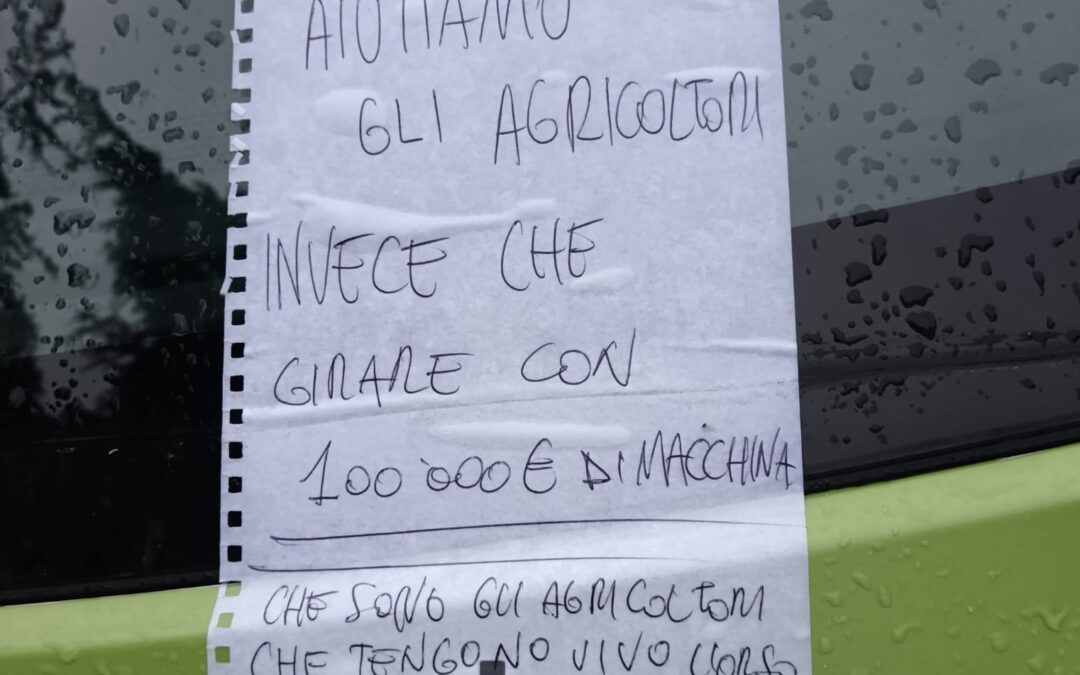 AIUTIAMO
GLI AGRICOLTORI
INVECE CHE
GIRARE CON
100'000€ DI MACCHINA
CHE SONO GLI AGRICOLTORI
CHE TENGONO VIVO